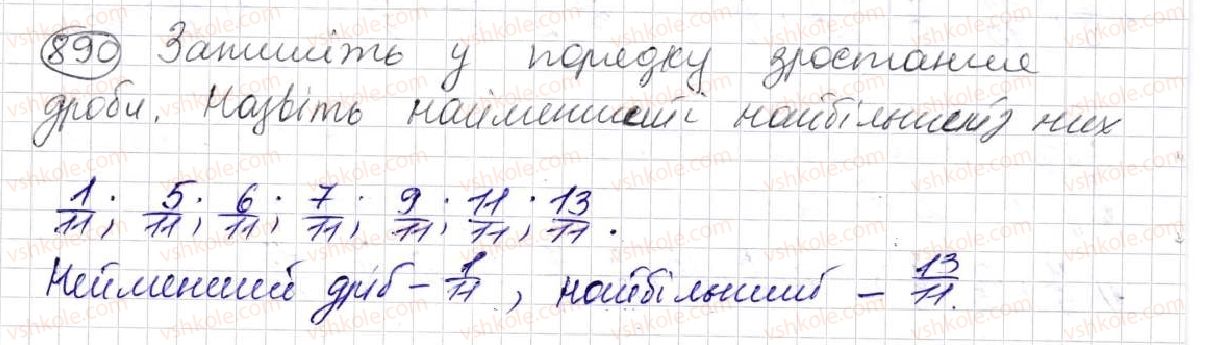 890 Запишіть у порядку зростання
дроби. Назвіть найменший і найбільший з них
1/11; 5/11; 6/11; 7/11; 9/11; 11/11; 13/11.
Найменший дріб – 1/11, найбільший – 13/11.